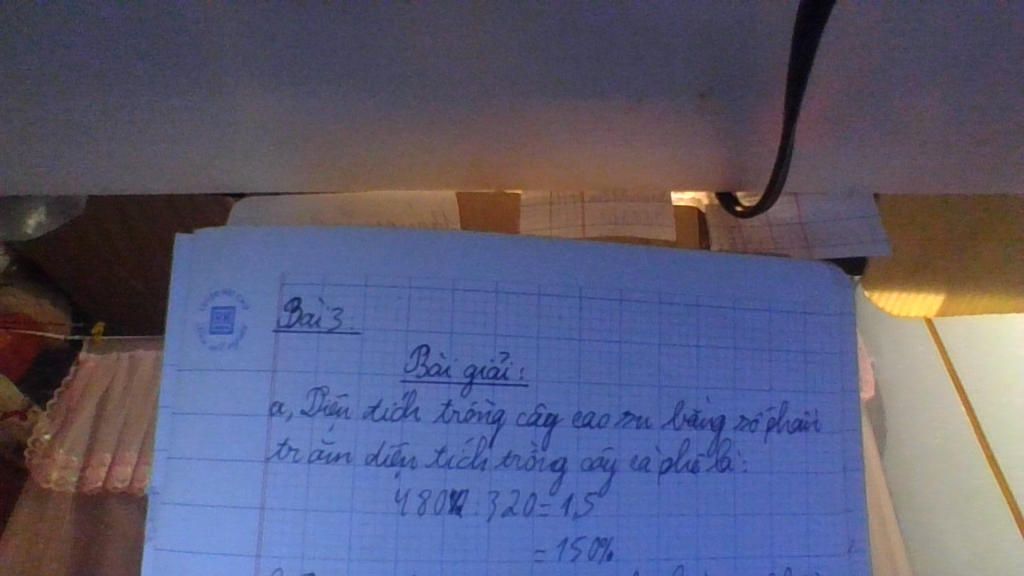 Bài 3.
Bài giải:
a, Diện tích trồng cây cao su bằng số phần
trăm diện tích trồng cây cà phê là:
480 : 320 = 1,5
= 150%